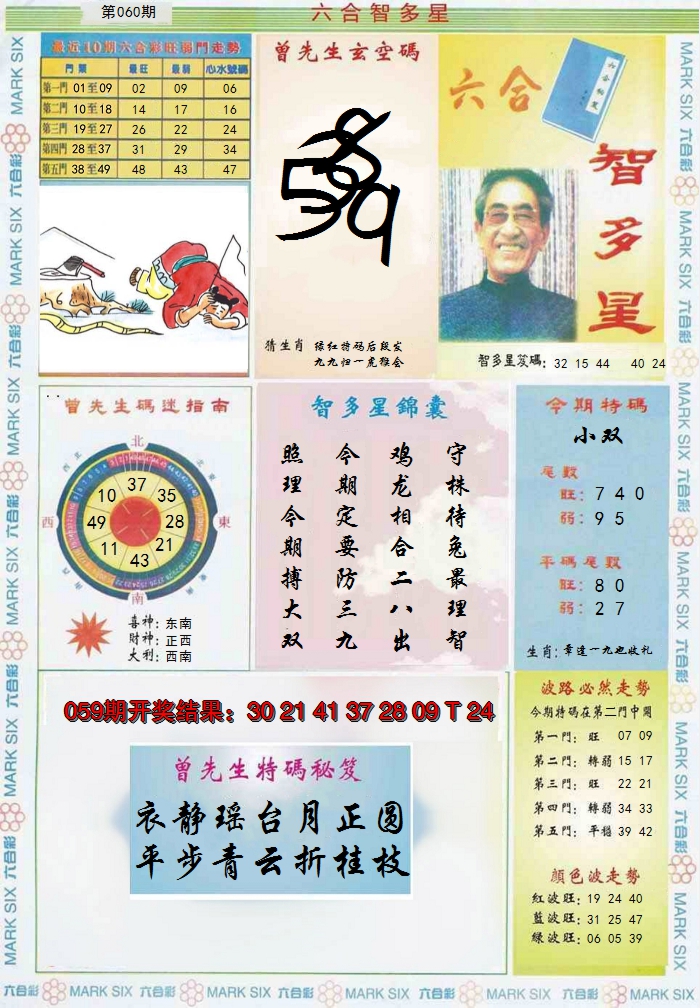 第060期
六合智多星
最近10期六合彩旺弱門走勢
門類 最旺 最弱 心水號碼
第一門 01至09 02 09 06
第二門 10至18 14 17 16
第三門 19至27 26 22 24
第四門 28至37 31 29 34
第五門 38至49 48 43 47
曾先生玄空碼
猜生肖 绿红特码后段发
九九归一虎猴会
六合
智多星
智多星笈碼: 32 15 44 40 24
曾先生碼迷指南
北
西
東
南
37
35
28
21
43
11
49
10
喜神: 东南
財神: 正西
大利: 西南
智多星錦囊
守株待兔最理智
鸡龙相合二八出
今期定要防三九
照理今期搏大双
今期特碼
小双
尾数
旺: 7 4 0
弱: 9 5
平碼尾数
旺: 8 0
弱: 2 7
生肖: 章逢一九也收礼
059期开奖结果: 30 21 41 37 28 09 T 24
曾先生特碼秘笈
衣静瑶台月正圆
平步青云折桂枝
波路必然走勢
今期特碼在第二門中開
第一門: 旺 07 09
第二門: 轉弱 15 17
第三門: 旺 22 21
第四門: 轉弱 34 33
第五門: 平穩 39 42
顔色波走勢
紅波旺: 19 24 40
藍波旺: 31 25 47
綠波旺: 06 05 39
六合彩 MARK SIX